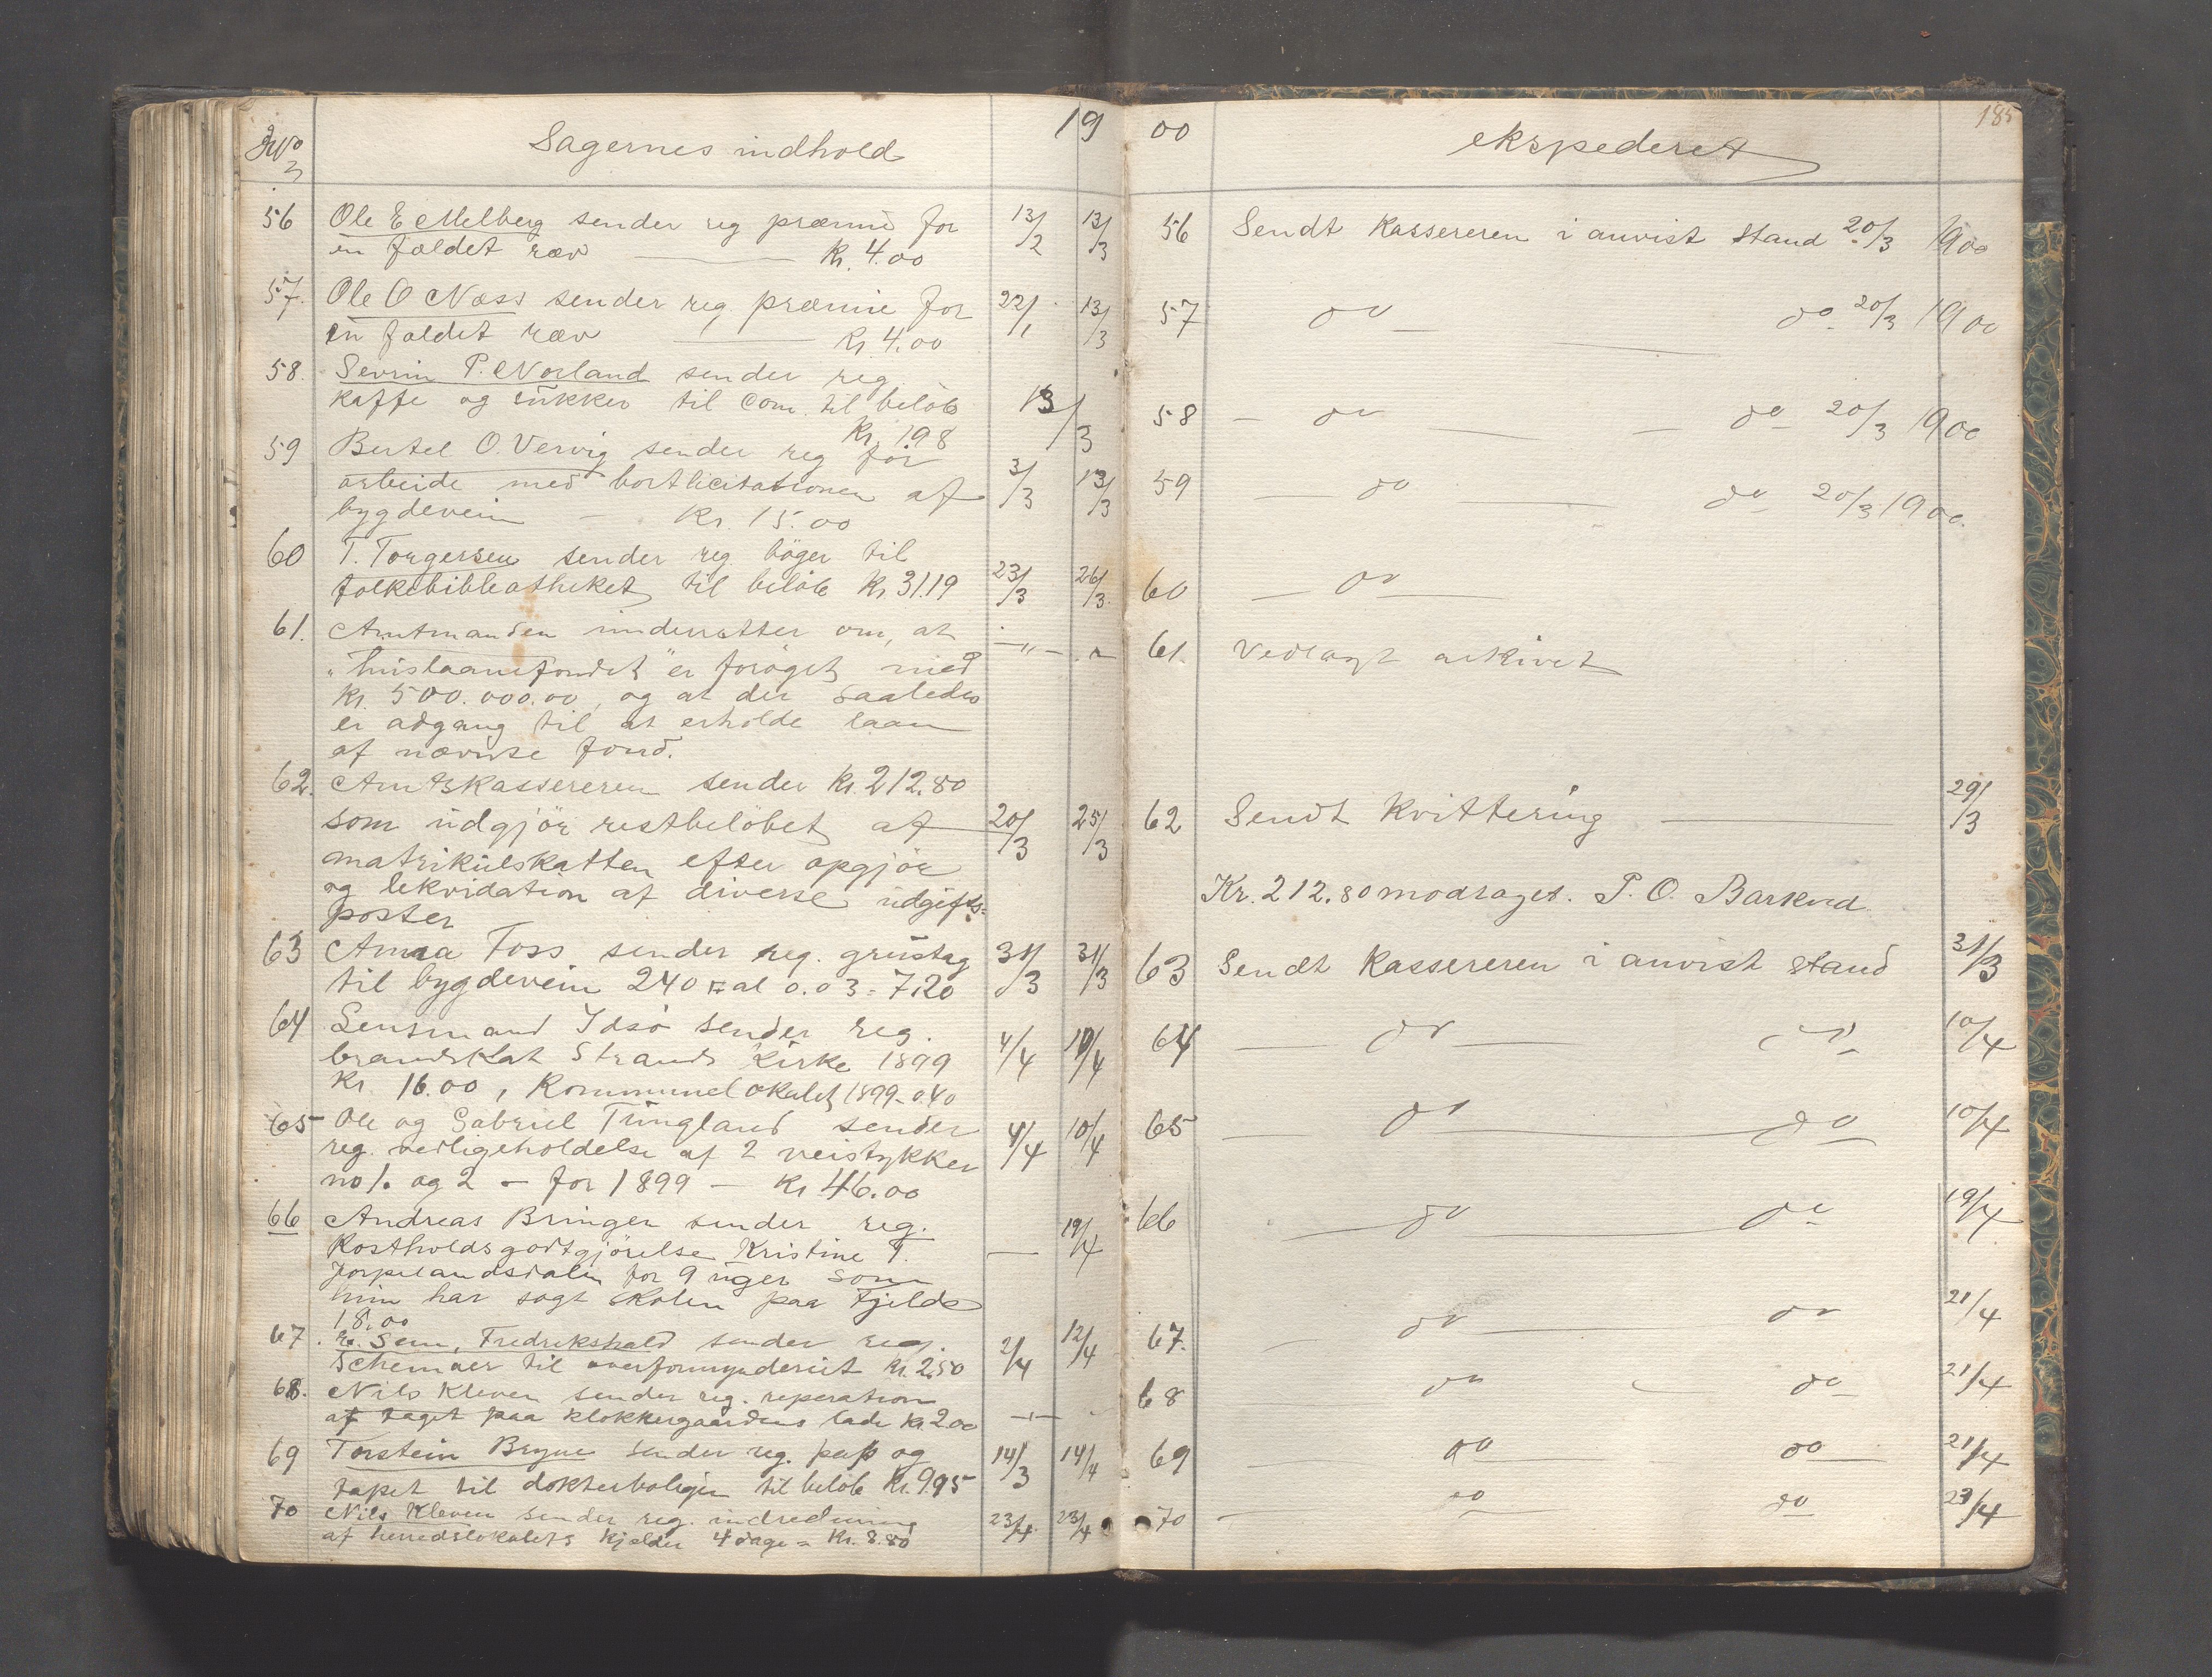 No
Sagernes indhold
19
56 Ole E Melberg sender reg præmie for 13/2 13/3
en fældet ræv — Kr. 4.00
57. Ole O Næss sender reg præmie for 22/1 13/3
en fældet ræv — Kr 4.00
58. Sevrin P. Norland sender reg.
kaffe og sukker til com. til beløb 13/3
Kr. 1.98
59 Bertel O. Vervig sender reg for
arbeide med bortlicitationen af 3/3 13/3
bygdevein — Kr. 15.00
60 T. Torgersen sender reg. bøger til
folkebibleotheket til beløb Kr 31.19 23/3 26/3
61. Amtmanden underretter om, at
"huslaanefondet" er forøget med — " —
Kr. 500.000.00, og at der saaledes
er adgang til at erholde laan
af nævnte fond.
62. Amtskassereren sender Kr. 212.80
som udgjør restbeløbet af 20/3 25/3
matrikulskatten efter opgjør
og lekvidation af diverse udgifts=
poster
63 Anna Foss sender reg. grustag 31/3 31/3
til bygdevein 240 al 0.03 = 7.20
64 Lensmand Idsø sender reg.
brandskat Strands Kirke 1899 4/4 10/4
Kr. 16.00, Kommunelokalet 1899 - 0.40
65 Ole og Gabriel Tungland sender
reg. vedligeholdelse af 2 veistykker 4/4 10/4
no 1. og 2 — for 1899 — Kr 46.00
66 Andreas Bringen sender reg.
Kostholdsgodtgjørelse Kristine T. — 19/4
Jørpelandsdalen for 9 uger som
hun har søgt skolen paa Fjelde
18.00
67. E. Sem, Fredrikshald sender reg.
Schemaer til overformynderiet Kr. 2.50 2/4 12/4
68. Nils Kleven sender reg. reperation
af taget paa klokkergaardens lade Kr 2.00 — " —
69 Torstein Bryne sender reg. pap og 14/3 14/4
tapet til dokterboligen til beløb Kr. 9.95
70 Nils Kleven sender reg. indredning
af herredslokalets kjelder 4 dage = Kr. 8.80 23/4 23/4
00
ekspederet
185
56 Sendt Kassereren i anvist stand 20/3 1900
57 do — do 20/3 1900
58 — do — do 20/3 1900
59 — do — do 20/3 1900.
60 — do —
61. Vedlagt arkivet
62 Sendt Kvittering — 29/3
Kr. 212.80 modtaget. P. O. Barkved
63 Sendt Kassereren i anvist stand 31/3
64 — do — do 10/4
65 — do — do 10/4
66 — do — do 19/4
67. — do — do 21/4
68 do — do 21/4
69 — do — do — 21/4
70 — do — do 23/4